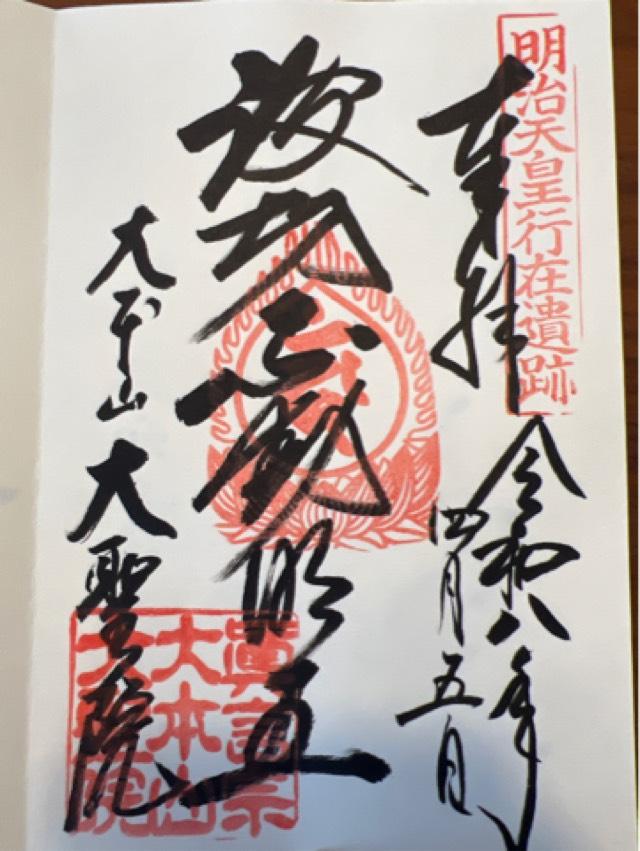 明治天皇行在遺跡
奉拝
令和八年
四月五日
波切不動明王
大本山 大聖院
眞言宗
大本山
大聖院